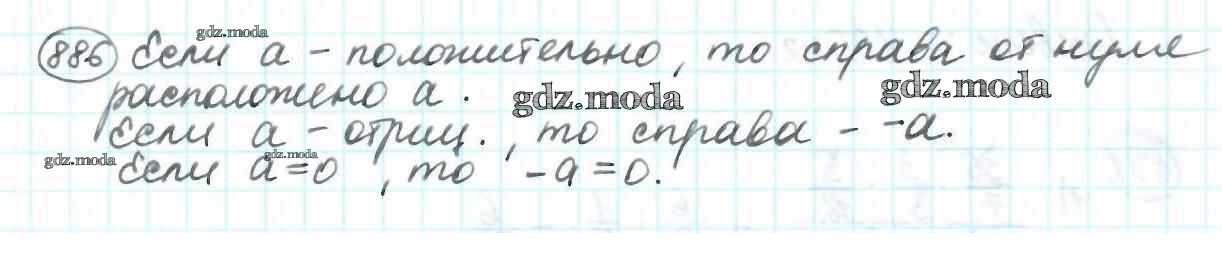 gdz.moda
886 Если а - положительно, то справа от нуля
расположено а. gdz.moda gdz.moda
Если а - отриц., то справа - -а.
gdz.moda gdz.moda
Если а=0, то -а=0.